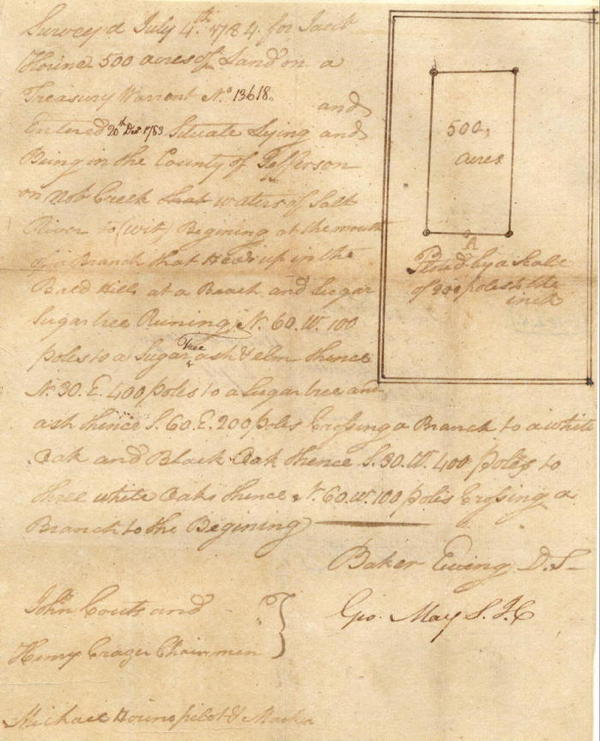 Survey'd July 4th. 1784. for Jacob
Hoine 500 acres of Land on a
Treasury Warrent No. 13618.
and
Entered 26th Decr 1783 Situate Lying and
Being in the County of Jefferson
on Nob Creek that waters of Salt
River to (wit) Begining at the mouth
of a Branch that Heads up in the
Bald Hills at a Beach and Sugar
Sugartree Runing N. 60. W. 100
poles to a Sugar Tree ash & elm thence
N. 30. E. 400 poles to a Sugartree and
ash thence S. 60. E. 200 poles Crossing a Branch to a white
Oak and Black Oak thence S. 30. W. 400 poles to
three white Oaks thence N. 60. W. 100 poles Crossing a
Branch to the Begining
Baker Ewing D. S
Geo. May S. J. C
John Couts and
Henry Crazer Chainmen
Michael Hoine pilot & Marker
500,
acres
A
Plotd. by a Scale
of 200 poles to the
inch